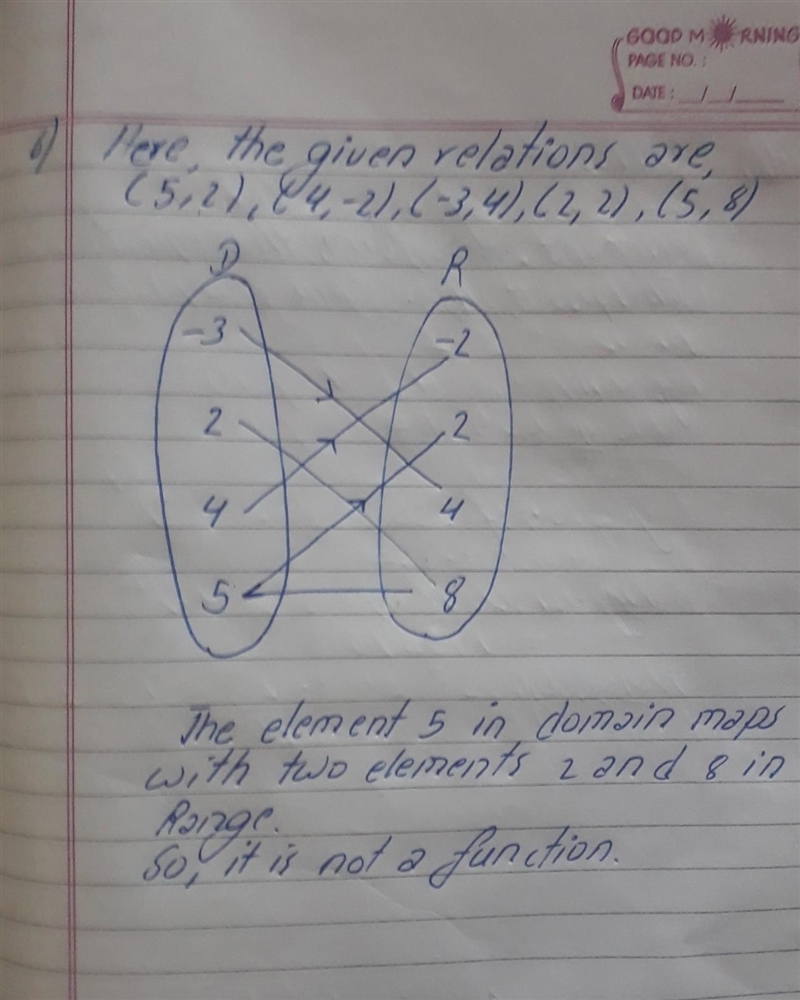 GOOD M RNING
PAGE NO. :
DATE : __/__/____
6) Here, the given relations are,
(5,2), (4,-2), (-3,4), (2,2), (5,8)
D R
-3 -2
2 2
4 4
5 8
The element 5 in domain maps
with two elements 2 and 8 in
Range.
So, it is not a function.